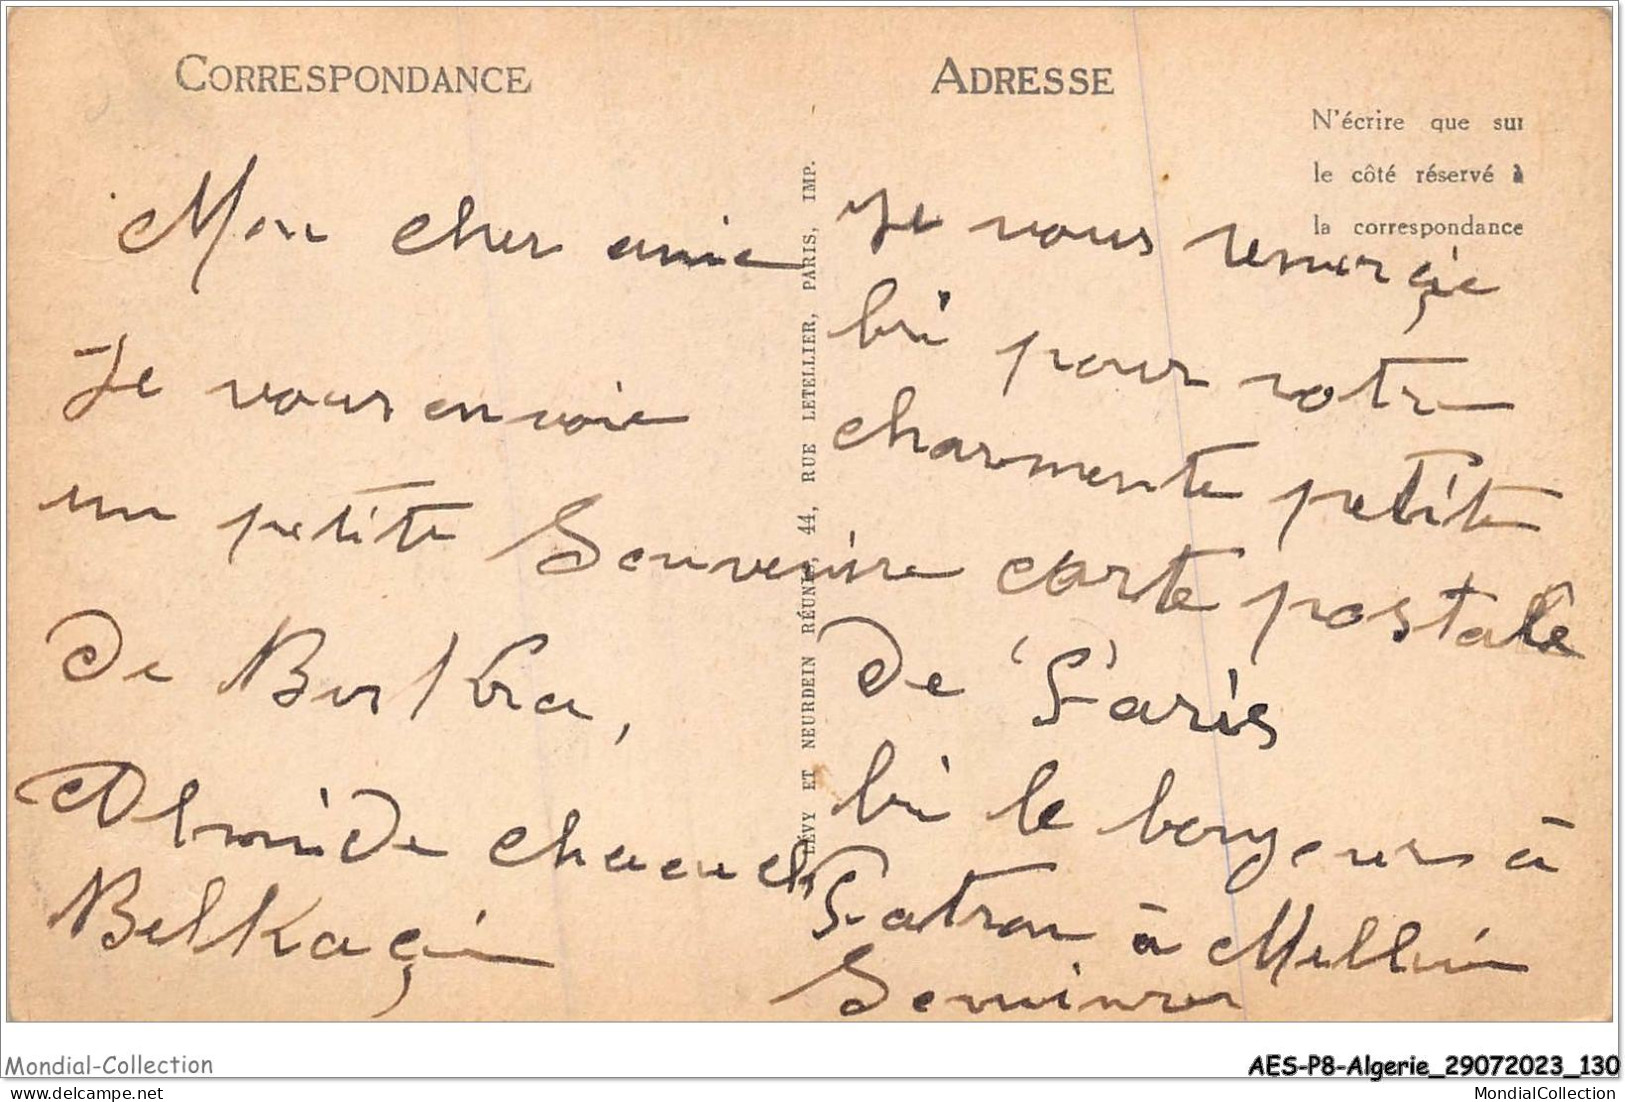 CORRESPONDANCE
Mon cher amie
Je vous envoie
un petite Souvenire
de Biskra,
chaouch
Belkaçin
LÉVY ET NEURDEIN RÉUNIS, 44, RUE LETELLIER, PARIS, IMP.
ADRESSE
N'écrire que sur
le côté réservé à
la correspondance
Je vous remerçie
bi pour votre
charmente petite
carte postale
de Paris
bi le bonjour à
Patron à
Mondial-Collection
AES-P8-Algerie_29072023_130
MondialCollection